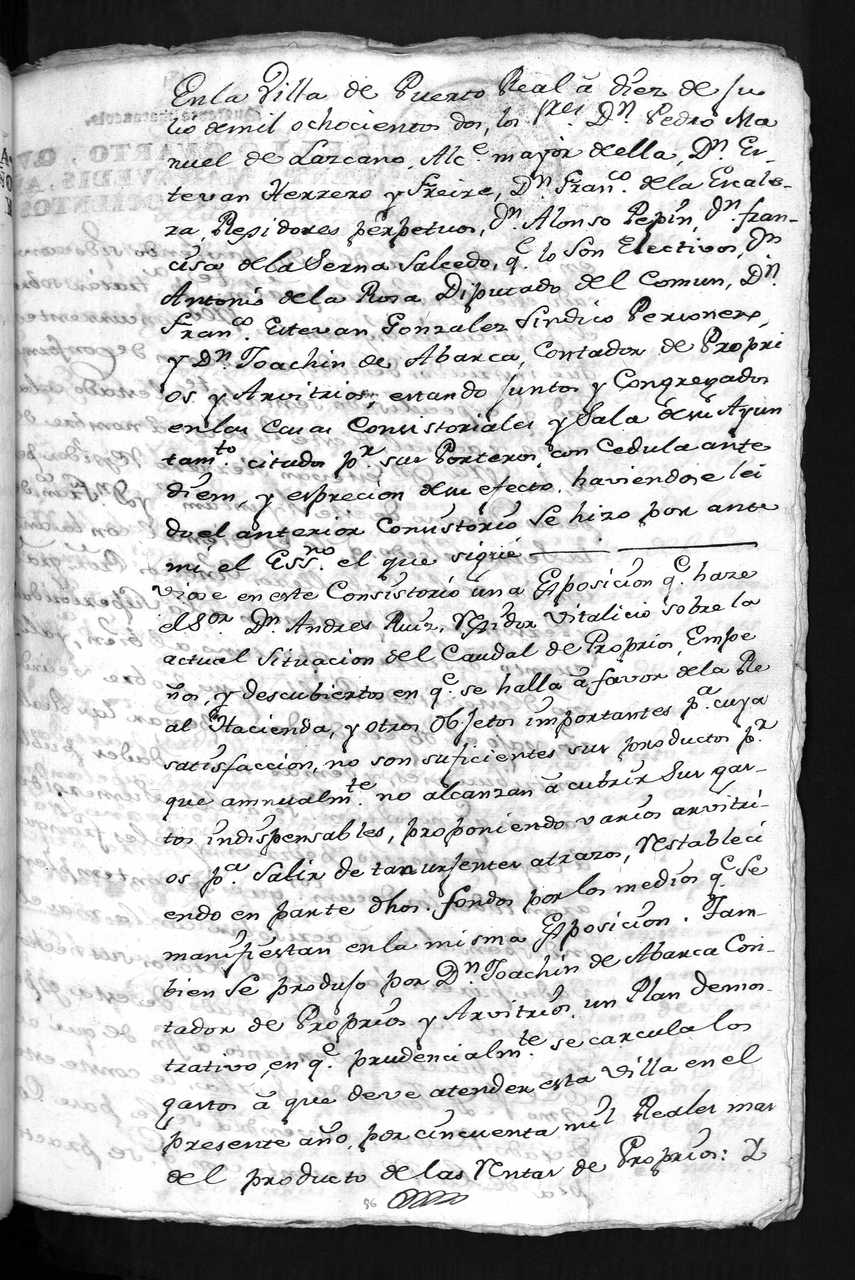 En la Villa de Puerto Real à diez de Ju
lio de mil ochocientos dos, los Sres. Dn. Pedro Ma
nuel de Lazcano, Alce. mayor de ella, Dn. Es-
tevan Herrero y Freire, Dn. Franco. de la Escale-
ra, Regidores perpetuos, Dn. Alonso Pepin, Dn. Fran-
cisco de la Serna Salcedo, qe. lo son Electivos, Dn.
Antonio de la Rosa Diputado del Comun, Dn.
Franco. Estevan Gonzalez Sindico Personero,
y Dn. Joachin de Abarca, Contador de Propri
os y Arvitrios, estando juntos y Congregados
en las Casas Consistoriales y Sala de su Ayun
tamto. citados pr. sus Porteros, con Cedula ante
diem, y espreción de su efecto, haviendose lei
do el anterior Consistorio se hizo por ante
mi el Essno. el que sigue
Viose en este Consistorio una Exposicion qe. hace
el Sor. Dn. Andres Ruiz, Regidor Vitalicio sobre la
actual Situacion del Caudal de Proprios, Empe
ños, y descubiertos en qe. se halla à favor de la Re
al Hacienda, y otros Objetos importantes pa. cuya
satisfaccion, no son suficientes sus productos pr.
que annualmte. no alcanzan à cubrir sus gas-
tos indispensables, proponiendo varios arvitri-
os pa. Salir de tan urjentes atrazos, restableci
endo en parte dhos. fondos por los medios qe. se
manifiestan en la misma Exposicion. Tam-
bien se produjo por Dn. Joachin de Abarca Con-
tador de Proprios y Arvitrios, un Plan demos-
trativo, en qe. prudencialmte. se carcula los
gastos à que deve atender esta Villa en el
presente año, por cincuenta mil Reales mas
del producto de las Rentas de Proprios: Y
56